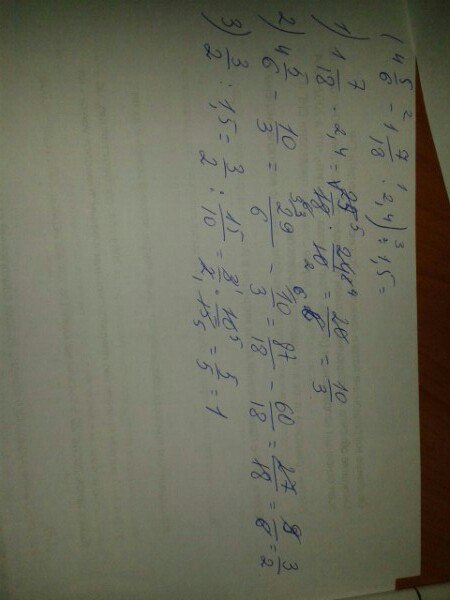 (4 5/6 - 1 7/18 · 2,4) : 1,5 =
1) 1 7/18 · 2,4 = 25/18 · 24/10 = 20/6 = 10/3
2) 4 5/6 - 10/3 = 29/6 - 10/3 = 87/18 - 60/18 = 27/18 = 9/6 = 3/2
3) 3/2 : 1,5 = 3/2 : 15/10 = 3/2 · 10/15 = 5/5 = 1